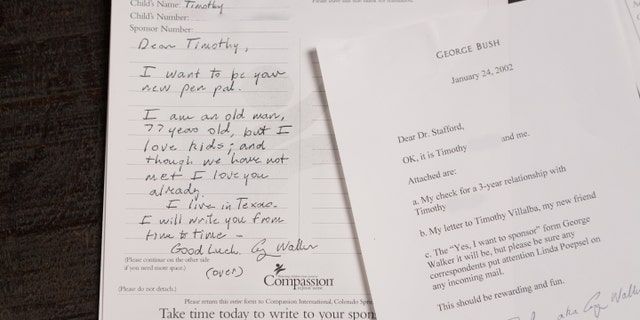 Child's Name: Timothy
Child's Number:
Sponsor Number:
Dear Timothy,
I want to be your
new pen pal.
I am an old man,
77 years old, but I
love kids; and
though we have not
met I love you
already.
I live in Texas.
I will write you from
time to time -
Good Luck. G. Walker
(Please continue on the other side
if you need more space.)
(over)
Compassion
(Please do not detach.)
Please return this entire form to Compassion International, Colorado Spri
Take time today to write to your spon
GEORGE BUSH
January 24, 2002
Dear Dr. Stafford,
OK, it is Timothy and me.
Attached are:
a. My check for a 3-year relationship with
Timothy
b. My letter to Timothy Villalba, my new friend
c. The "Yes, I want to sponsor" form George
Walker it will be, but please be sure any
correspondents put attention Linda Poepsel on
any incoming mail.
This should be rewarding and fun.
aka G. Walker